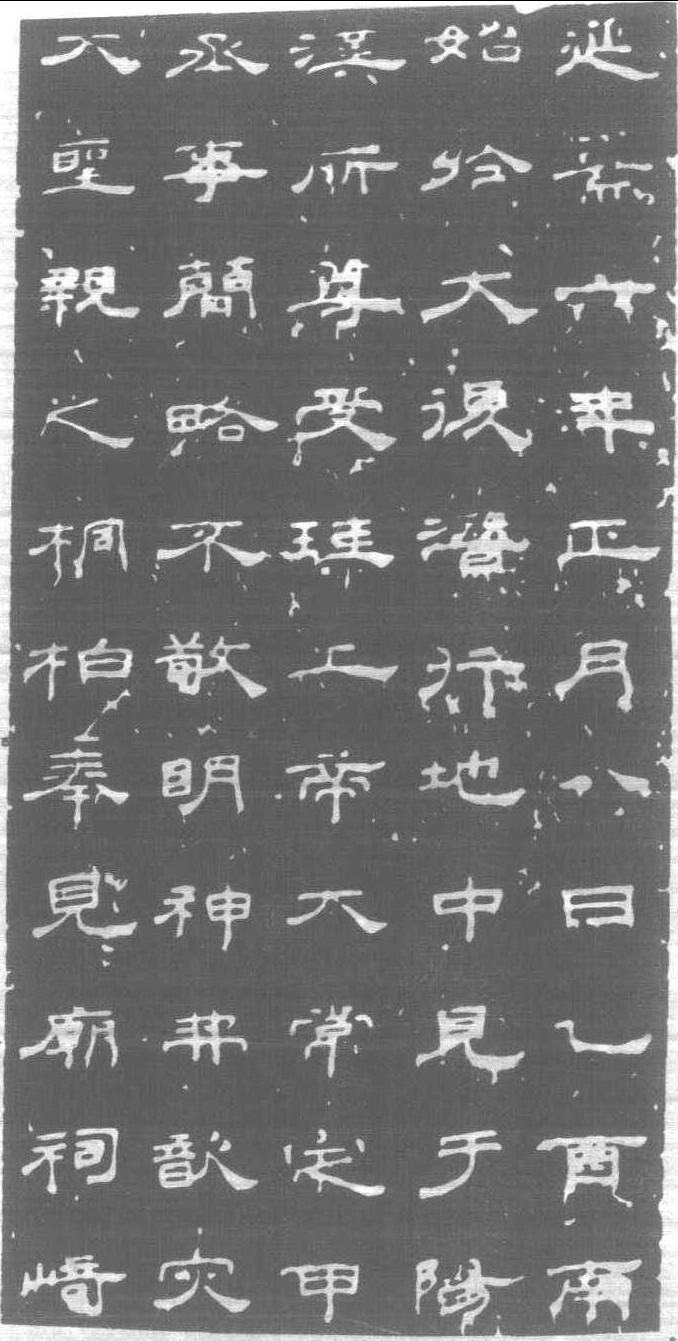 延熹六年正月八日乙酉南
始於大復潛行地中見于陽
漢所尊受珪上帝大常定甲
丞事簡略不敬明神弗歆灾
大聖親之桐柏奉見廟祠崎